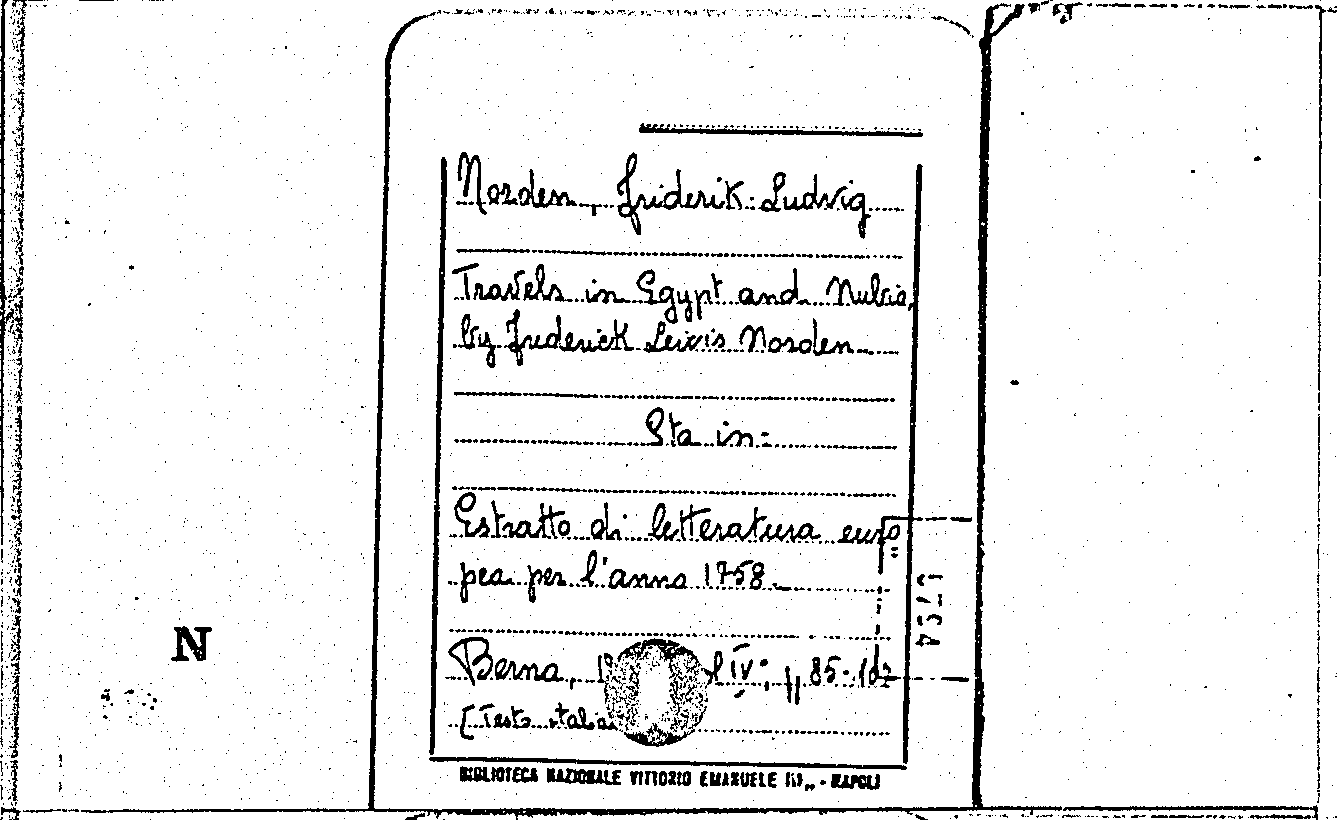 Norden, Friderik-Ludvig
Travels in Egypt and Nubia,
by Frederick Lewis Norden
Sta in:
Estratto di letteratura euro
pea per l'anna 1758.
Berna, IV: 85-102
[Testo
BIBLIOTECA NAZIONALE VITTORIO EMANUELE III„ - NAPOLI
N